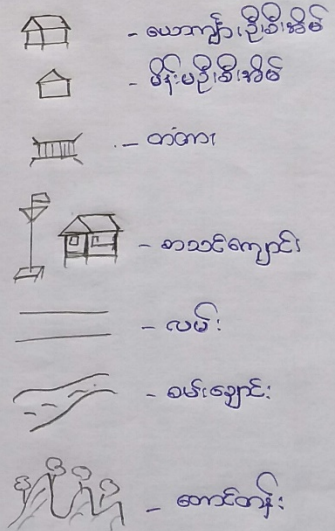 - ယောကျ်ားဦးစီးအိမ်
- မိန်းမဦးစီးအိမ်
- တံတား
- စာသင်ကျောင်း
- လမ်း
- စမ်းချောင်း
- တောင်တန်း